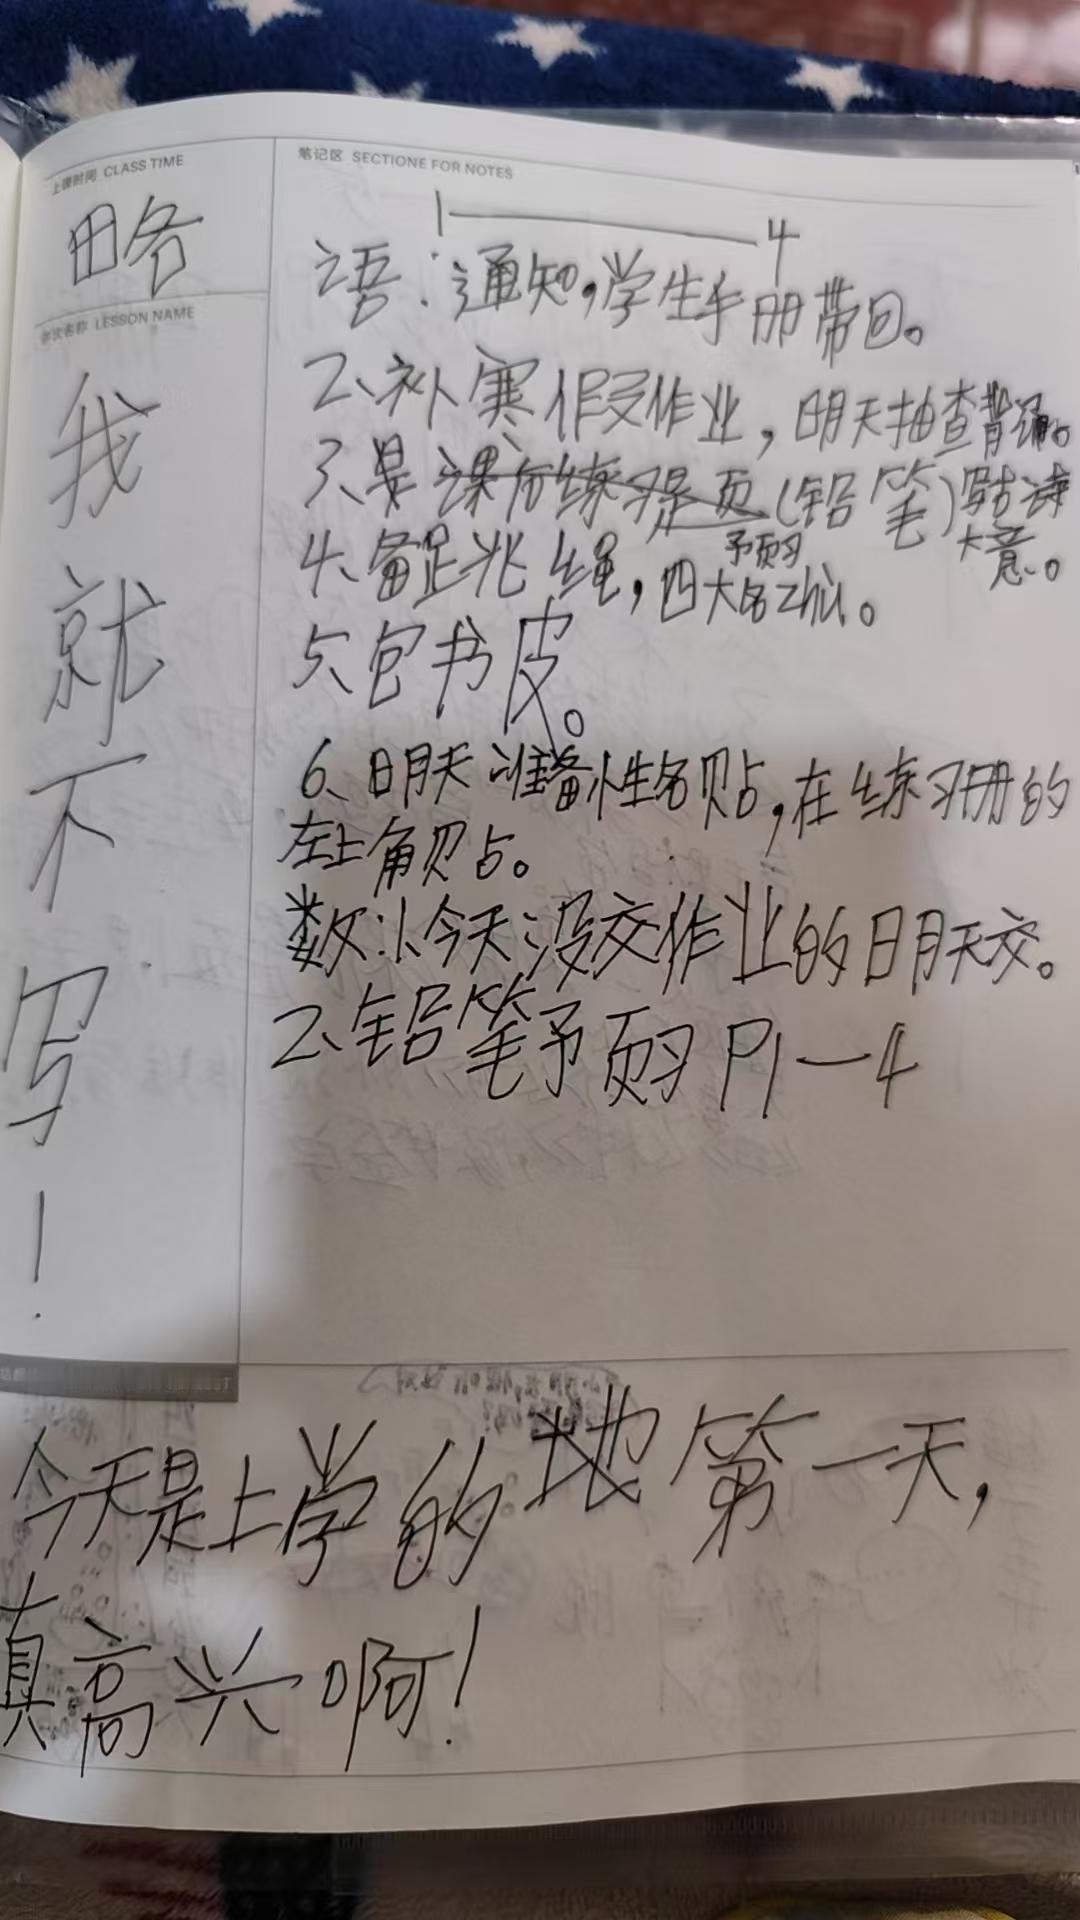 上课时间 CLASS TIME
略
LESSON NAME
我
就
不
写
！
笔记区 SECTIONE FOR NOTES
1——4
语：通知，学生手册带回。
2、补寒假作业，明天抽查背诵。
3、(铅笔)
大意。
4、备足跳绳，预习四大名
5、包书皮。
6、明天准备姓名贴，在练习册的
左上角贴。
数：1、今天没交作业的明天交。
2、铅笔予页习P1—4
今天是上学的地第一天，
真高兴啊！